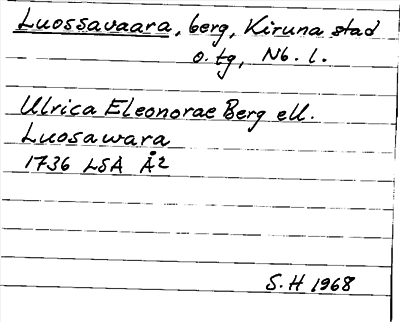 Luossavaara, berg, Kiruna stad
o. tg, Nb. l.
Ulrica Eleonorae Berg ell.
Luosawara
1736 LSA Å2
S.H 1968